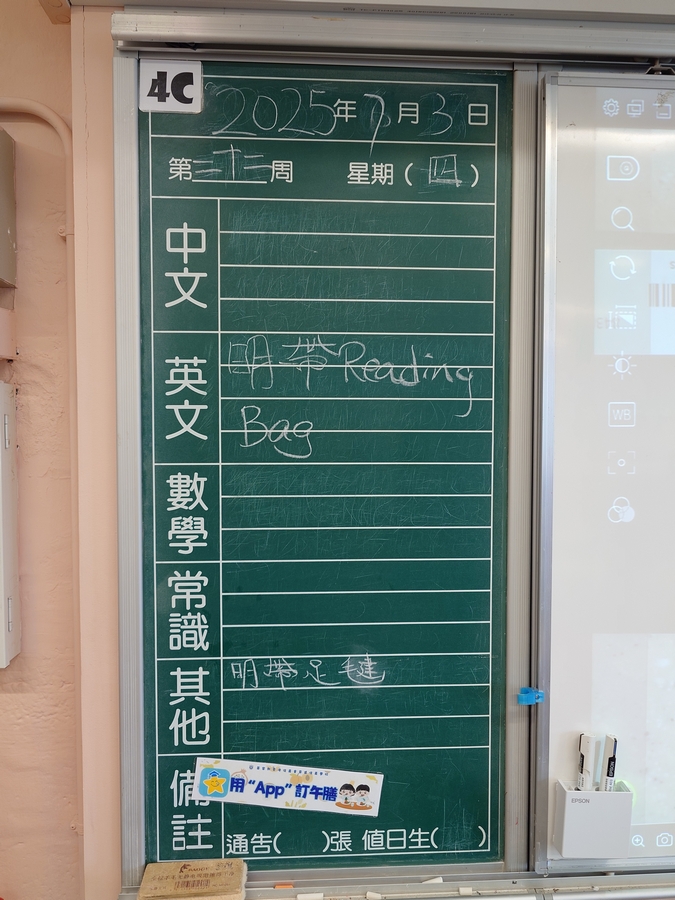 4C
2025年7月3日
第三十三周 星期(四)
中文
英文
明帶Reading
Bag
數學
常識
其他
明帶足毽
備註
用“App”訂午膳
通告( )張 值日生( )
WB
EPSON